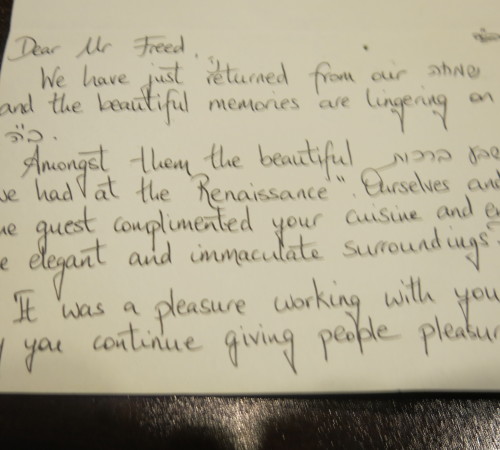 Dear Mr Freed,
We have just returned from our שמחה
and the beautiful memories are lingering on
Amongst them the beautiful שבע ברכות
we had at the "Renaissance". Ourselves and
guest complimented your cuisine and
elegant and immaculate surroundings
It was a pleasure working with you
you continue giving people pleasur